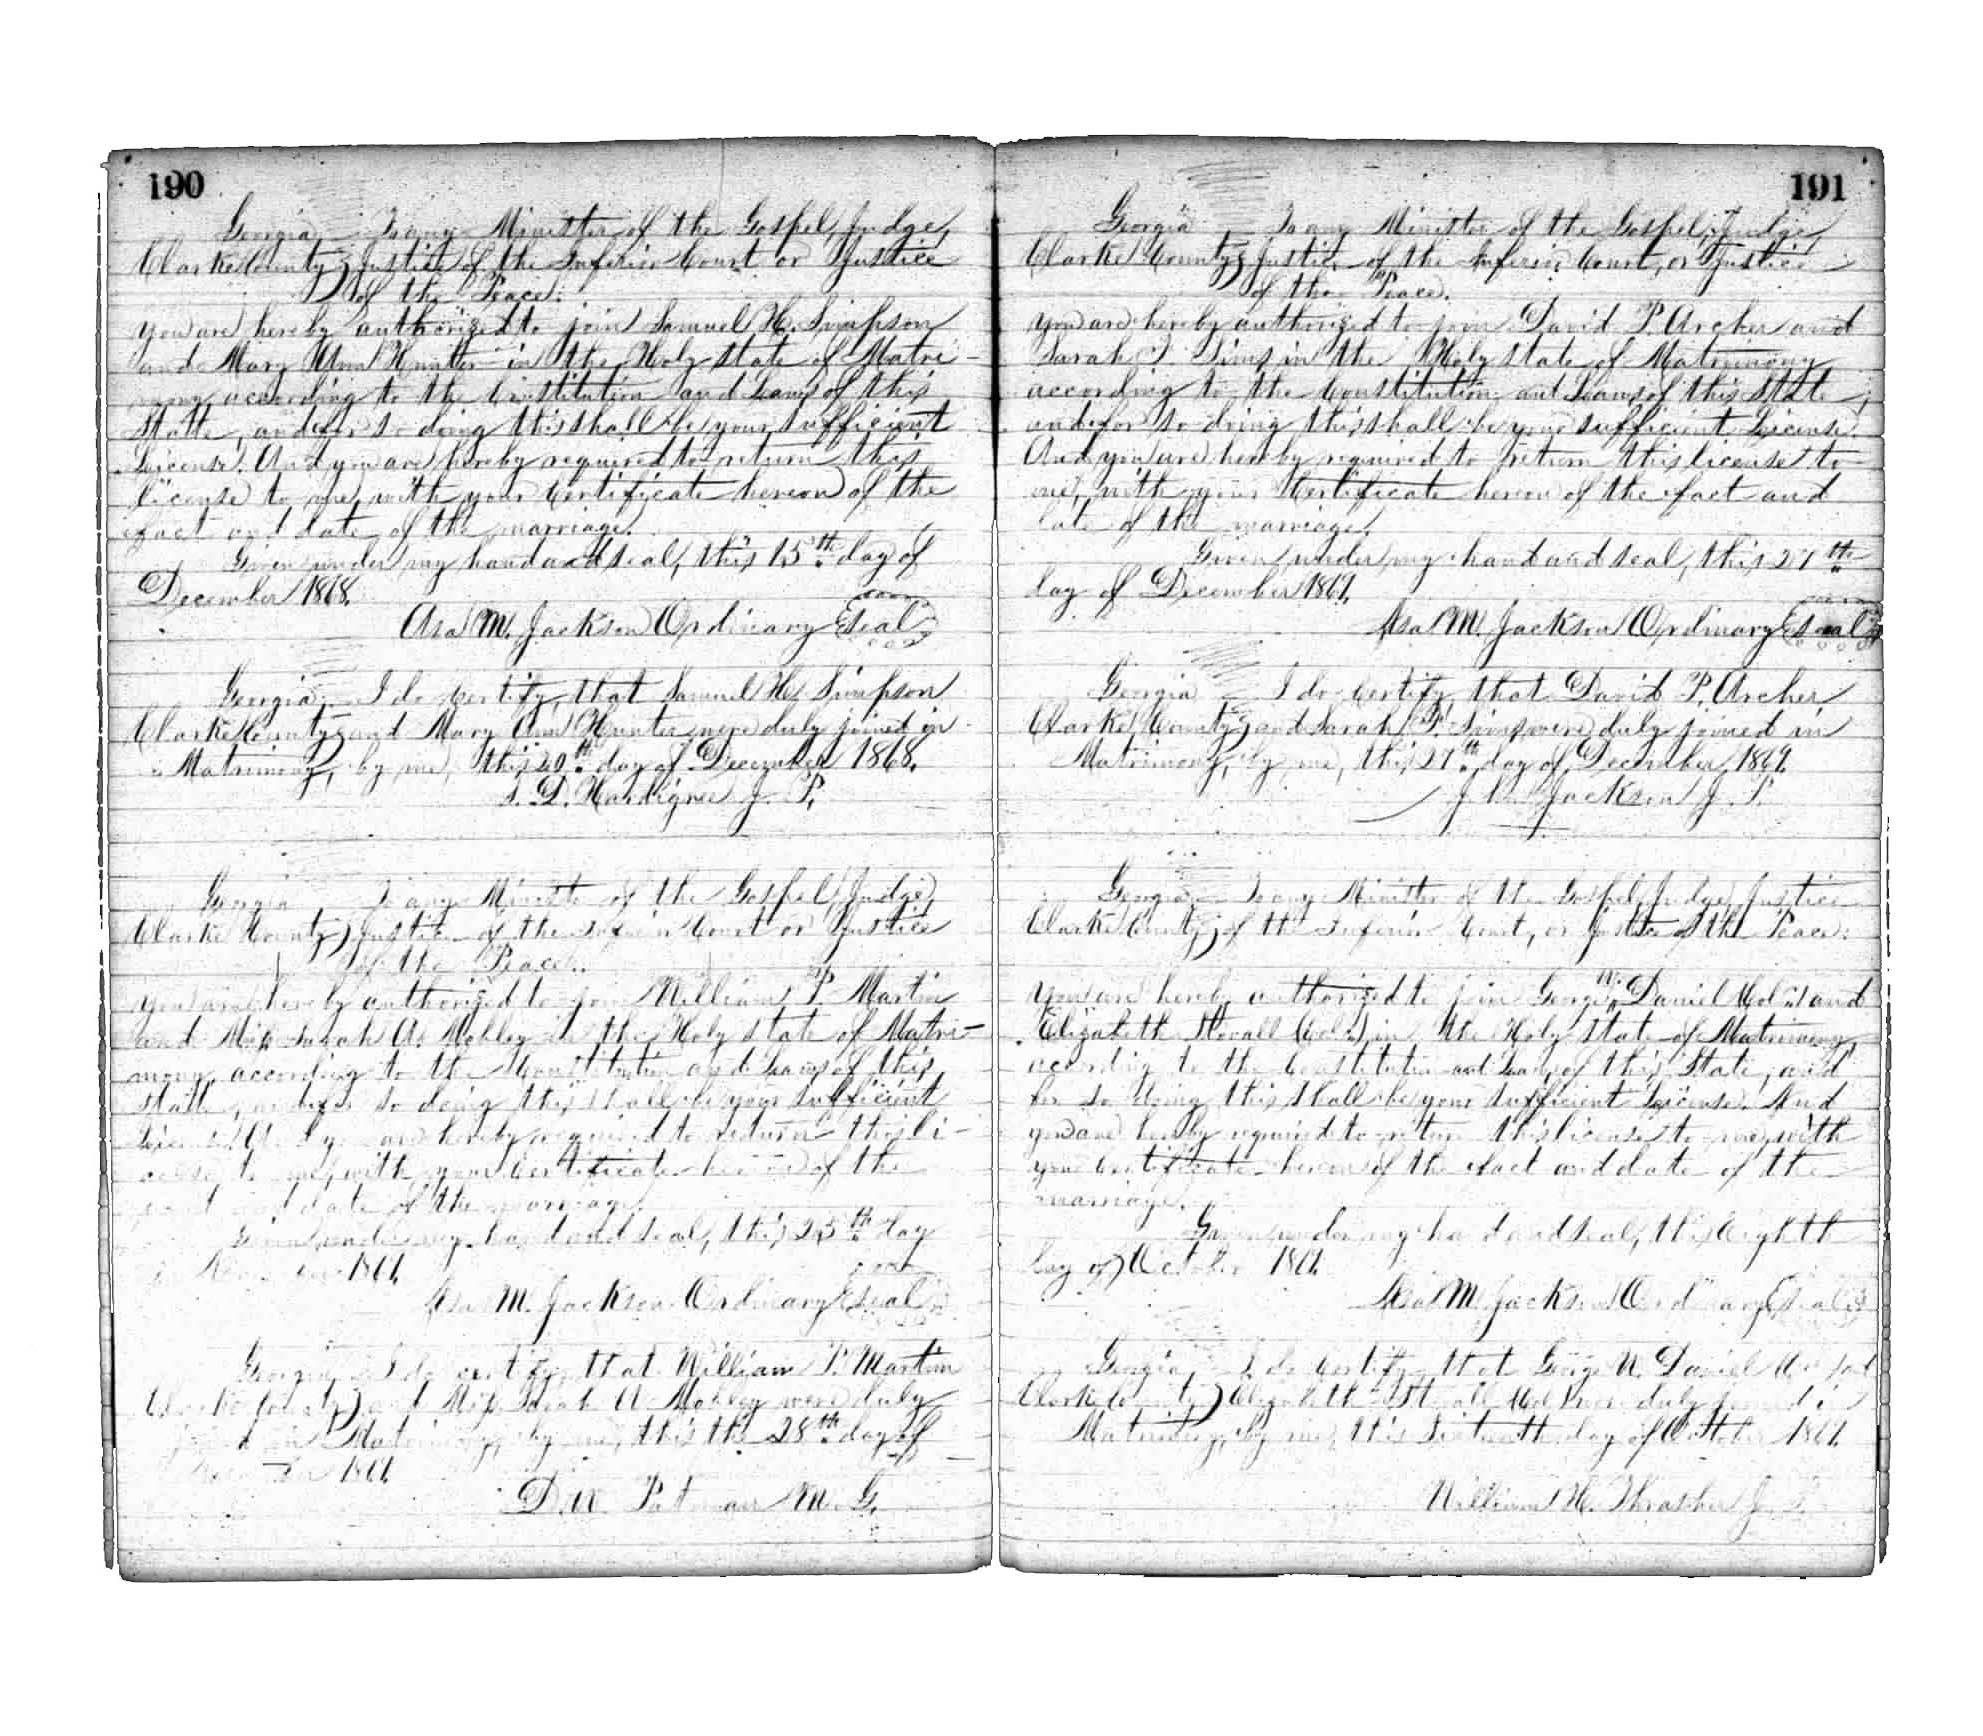 190
Georgia To any Minister of the Gospel, Judge,
Clarke County } Justice of the Inferior Court or Justice
of the Peace:
You are hereby authorized to join Samuel H. Simpson
and Mary Ann Hunter in the Holy state of Matri-
mony according to the Constitution and Laws of this
State, and for so doing this shall be your sufficient
License. And you are hereby required to return this
license to me, with your Certificate hereon of the
fact and date of the marriage.
Given under my hand and seal, this 15th day of
December 1868.
Asa M. Jackson Ordinary Seal
Georgia I do certify that Samuel H. Simpson
Clarke County } and Mary Ann Hunter were duly joined in
Matrimony, by me, this 20th day of December 1868.
D. Hardigree J. P.
Georgia To any Minister of the Gospel, Judge,
Clarke County } Justice of the Inferior Court or Justice
of the Peace:
You are hereby authorized to join William P. Martin
and Miss Sarah A. Mobley in the Holy state of Matri-
mony, according to the Constitution and Laws of this
State, and for so doing this shall be your sufficient
License. And you are hereby required to return this li-
cense to me, with your Certificate hereon of the
fact and date of the marriage.
Given under my hand and seal, this 25th day
Asa M. Jackson Ordinary Seal
Georgia I do certify that William P. Martin
Clarke County } and Miss Sarah A Mobley were duly
joined in Matrimony, by me, this the 28th day of
D. W. M. G.
191
Georgia To any Minister of the Gospel, Judge,
Clarke County } Justice of the Inferior Court, or Justice
of the Peace.
You are hereby authorized to join David P. Archer and
Sarah Sims in the Holy state of Matrimony
according to the Constitution and Laws of this State,
and for so doing this shall be your sufficient License.
And you are hereby required to return this license to
me, with your Certificate hereon of the fact and
date of the marriage.
Given under my hand and seal, this 27th
day of December
Asa M. Jackson Ordinary Seal
Georgia I do certify that David P. Archer
Clarke County } and Sarah Sims were duly joined in
Matrimony, by me, this 27th day of December
Jackson J. P.
Georgia To any Minister of the Gospel, Judge, Justice
Clarke County } of the Inferior Court, or Justice of the Peace:
You are hereby authorized to join George N. Daniel (Col'd) and
Elizabeth Stovall (Col'd) in the Holy state of Matrimony,
according to the Constitution and Laws of this State, and
for so doing this shall be your sufficient License. And
you are hereby required to return this license to me, with
your Certificate hereon of the fact and date of the
marriage.
Given under my hand and seal, this Eighth
day of October
Asa M. Jackson Ordinary Seal
Georgia I do certify that George N. Daniel and
Clarke County } Elizabeth Stovall were duly joined in
Matrimony, by me, this Sixteenth day of October
William H. Thrasher J. P.